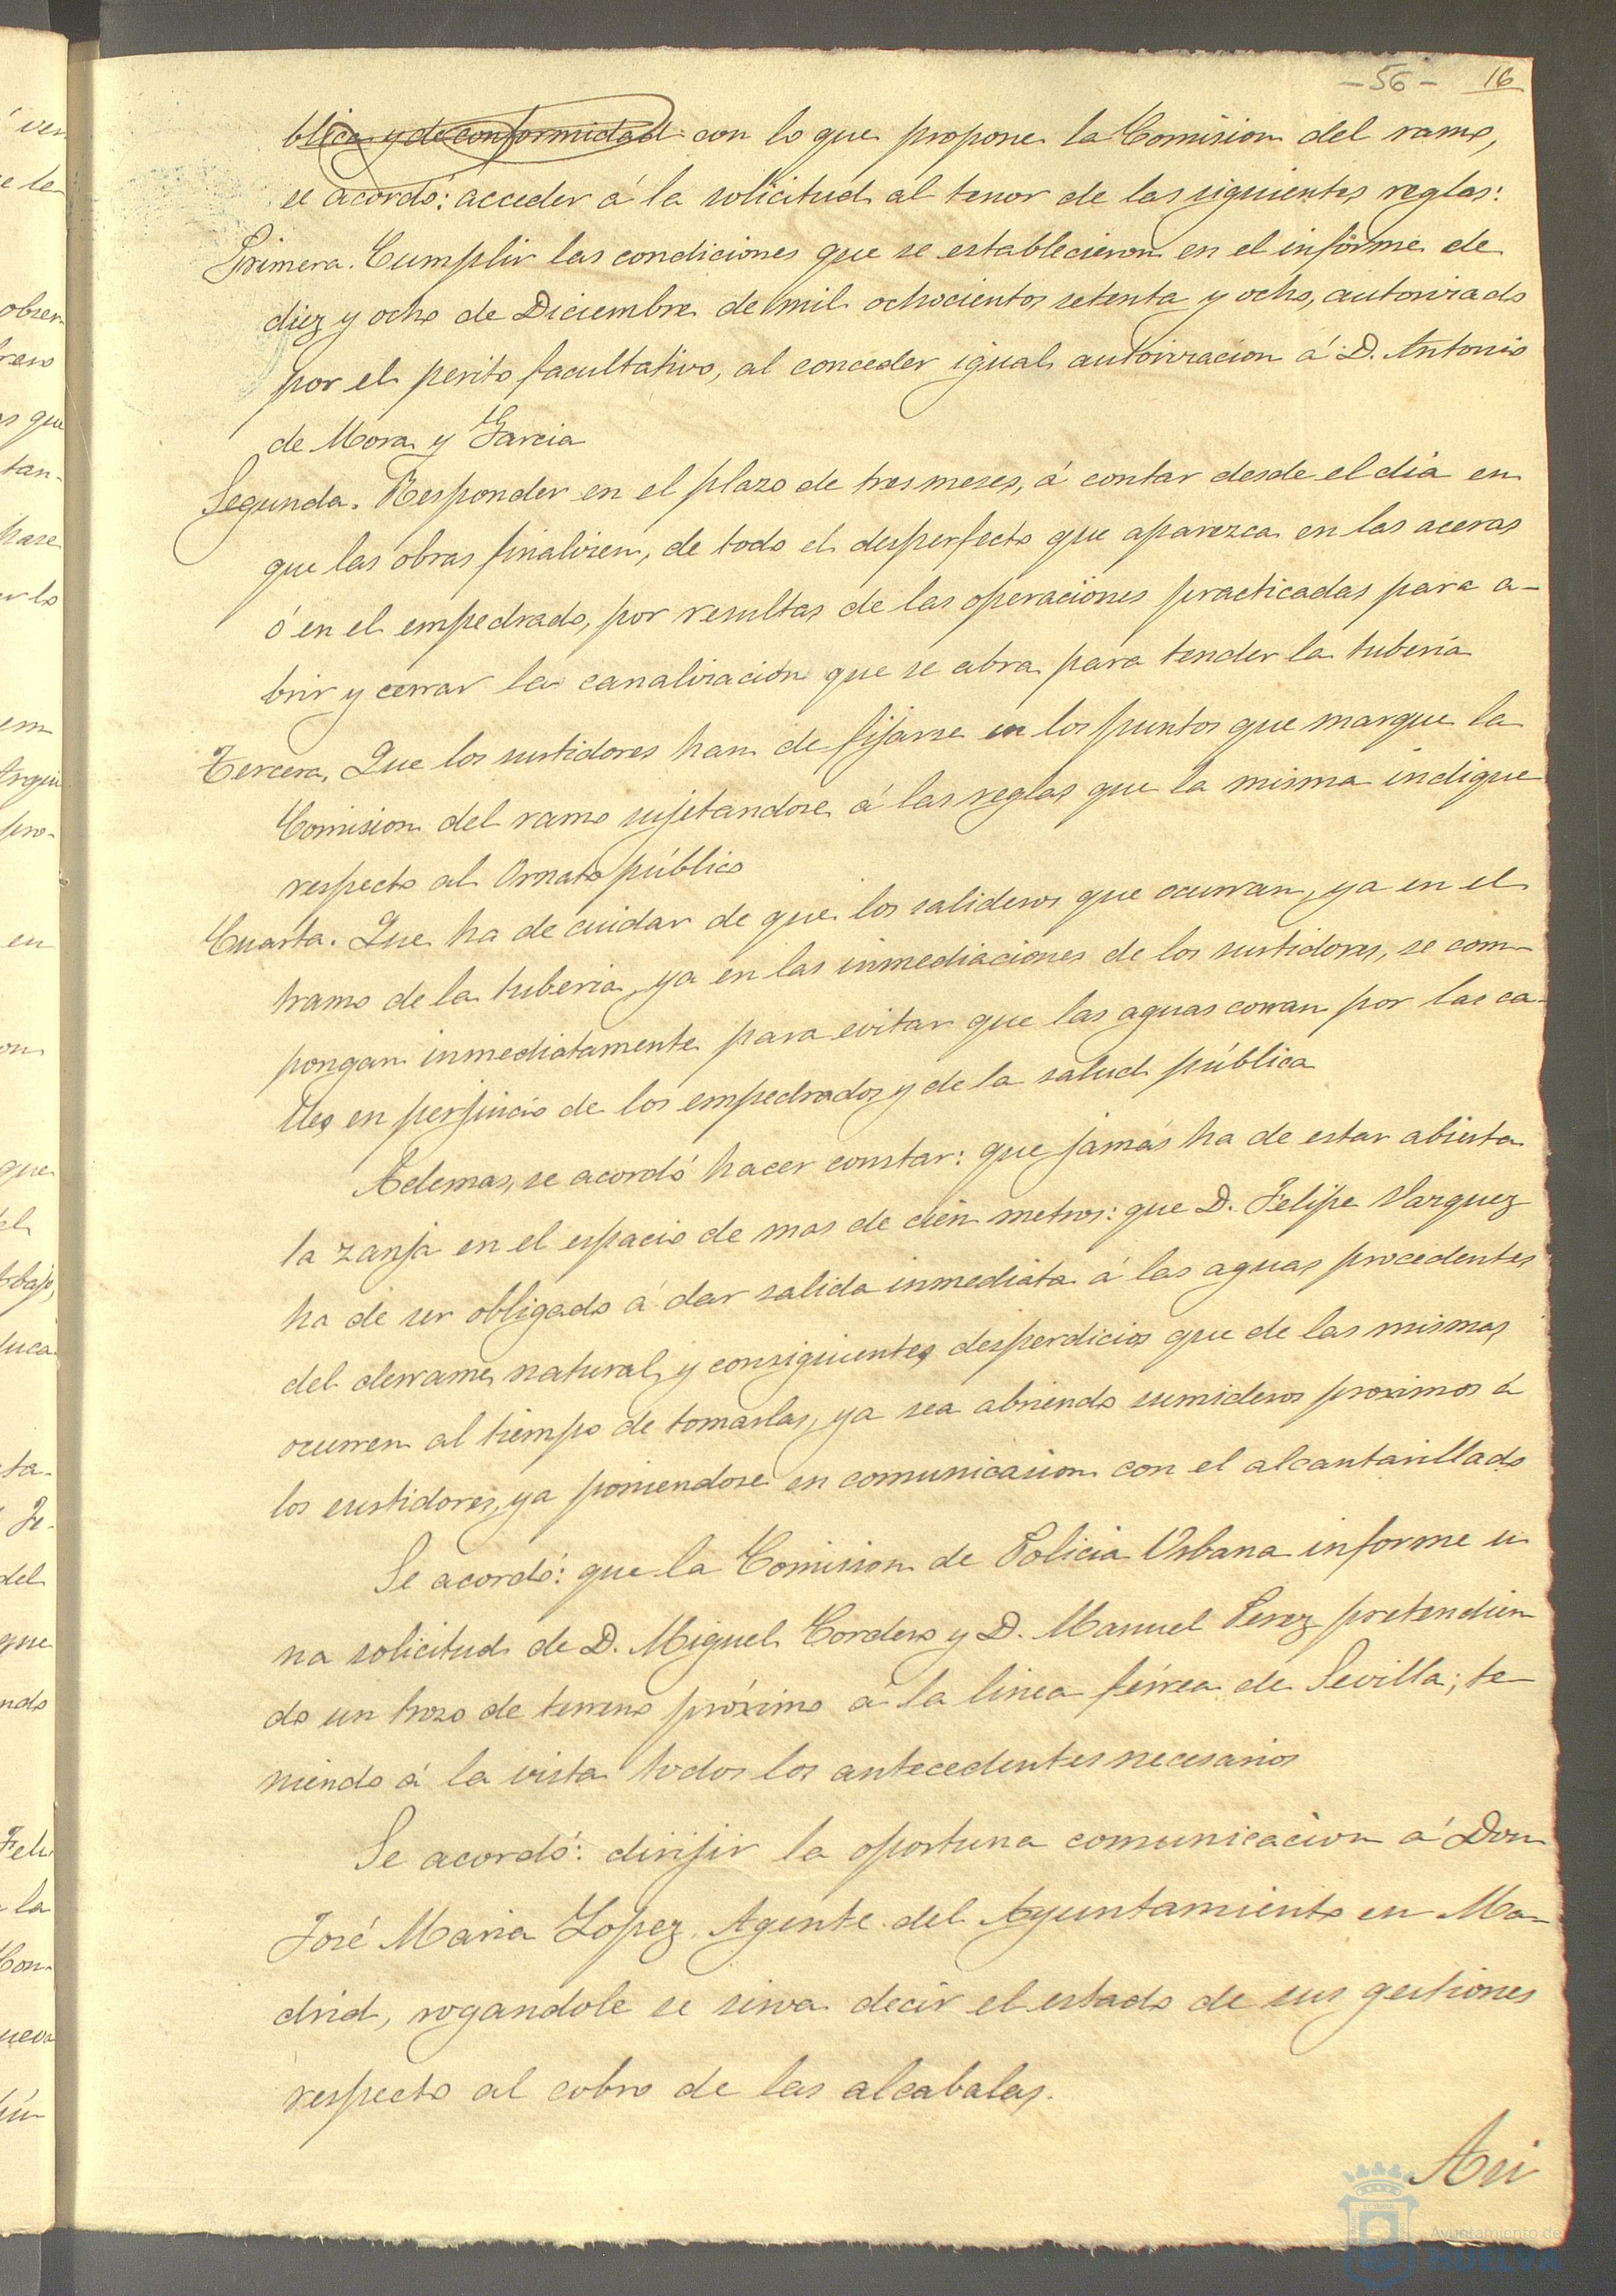 - 56 - 16
blica y de conformidad con lo que propone la Comision del ramo,
se acordó: acceder á la solicitud al tenor de las siguientes reglas:
Primera. Cumplir las condiciones que se establecieron en el informe de
diez y ocho de Diciembre de mil ochocientos setenta y ocho, autorizado
por el perito facultativo, al conceder igual autorizacion á D. Antonio
de Mora y Garcia
Segunda. Responder en el plazo de tres meses, á contar desde el dia en
que las obras finalizen, de todo el desperfecto que aparezca en las aceras
ó en el empedrado, por resultas de las operaciones practicadas para a-
brir y cerrar la canalizacion que se abra para tender la tuberia
Tercera. Que los surtidores han de fijarse en los puntos que marque la
Comision del ramo sujetandose á las reglas que la misma indique
respecto al Ornato público
Cuarta. Que ha de cuidar de que los salideros que ocurran, ya en el
tramo de la tuberia, ya en las inmediaciones de los surtidores, se com-
pongan inmediatamente para evitar que las aguas corran por las ca-
lles en perjuicio de los empedrados y de la salud pública
Ademas, se acordó hacer constar: que jamás ha de estar abierta
la zanja en el espacio de mas de cien metros: que D. Felipe Vazquez
ha de ser obligado á dar salida inmediata á las aguas procedentes
del derrame natural, y consiguientes desperdicios que de las mismas
ocurren al tiempo de tomarlas, ya sea abriendo sumideros proximos á
los surtidores, ya poniendose en comunicacion con el alcantarillado
Se acordó: que la Comision de Policia Urbana informe u
na solicitud de D. Miguel Cordero y D. Manuel Perez pretendien
do un trozo de terreno próximo á la linea férrea de Sevilla; te-
niendo á la vista todos los antecedentes necesarios
Se acordó: dirijir la oportuna comunicacion á Don
José Maria Lopez, Agente del Ayuntamiento en Ma-
drid, rogandole se sirva decir el estado de sus gestiones
respecto al cobro de las alcabalas.
Asi
Ayuntamiento de
HUELVA